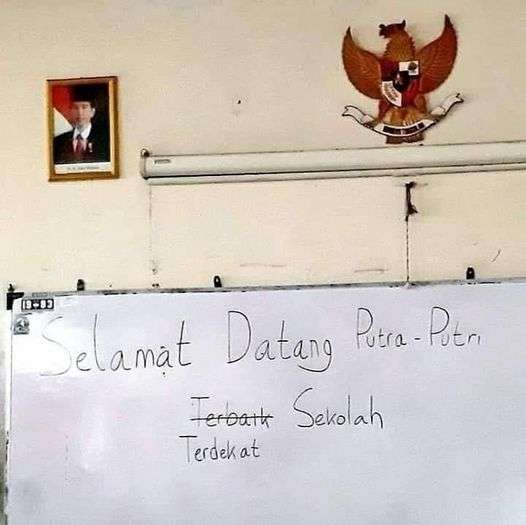 Selamat Datang Putra-Putri
Terbaik Sekolah
Terdekat